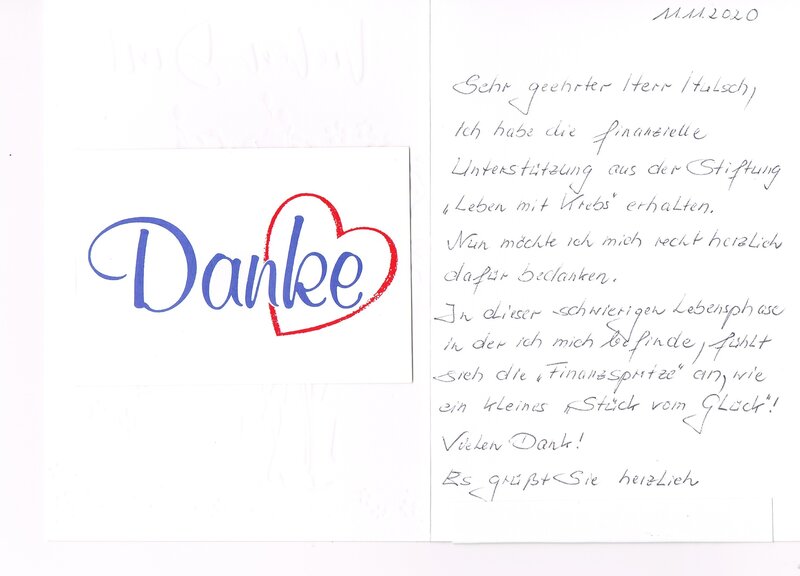 Danke
11.11.2020
Sehr geehrter Herr Itulsch,
Ich habe die finanzielle
Unterstützung aus der Stiftung
„Leben mit Krebs" erhalten.
Nun möchte ich mich recht herzlich
dafür bedanken.
In dieser schwierigen Lebensphase
in der ich mich befinde, fühlt
sich die „Finanzspritze" an, wie
ein kleines „Stück vom Glück"!
Vielen Dank!
Es grüßt Sie herzlich